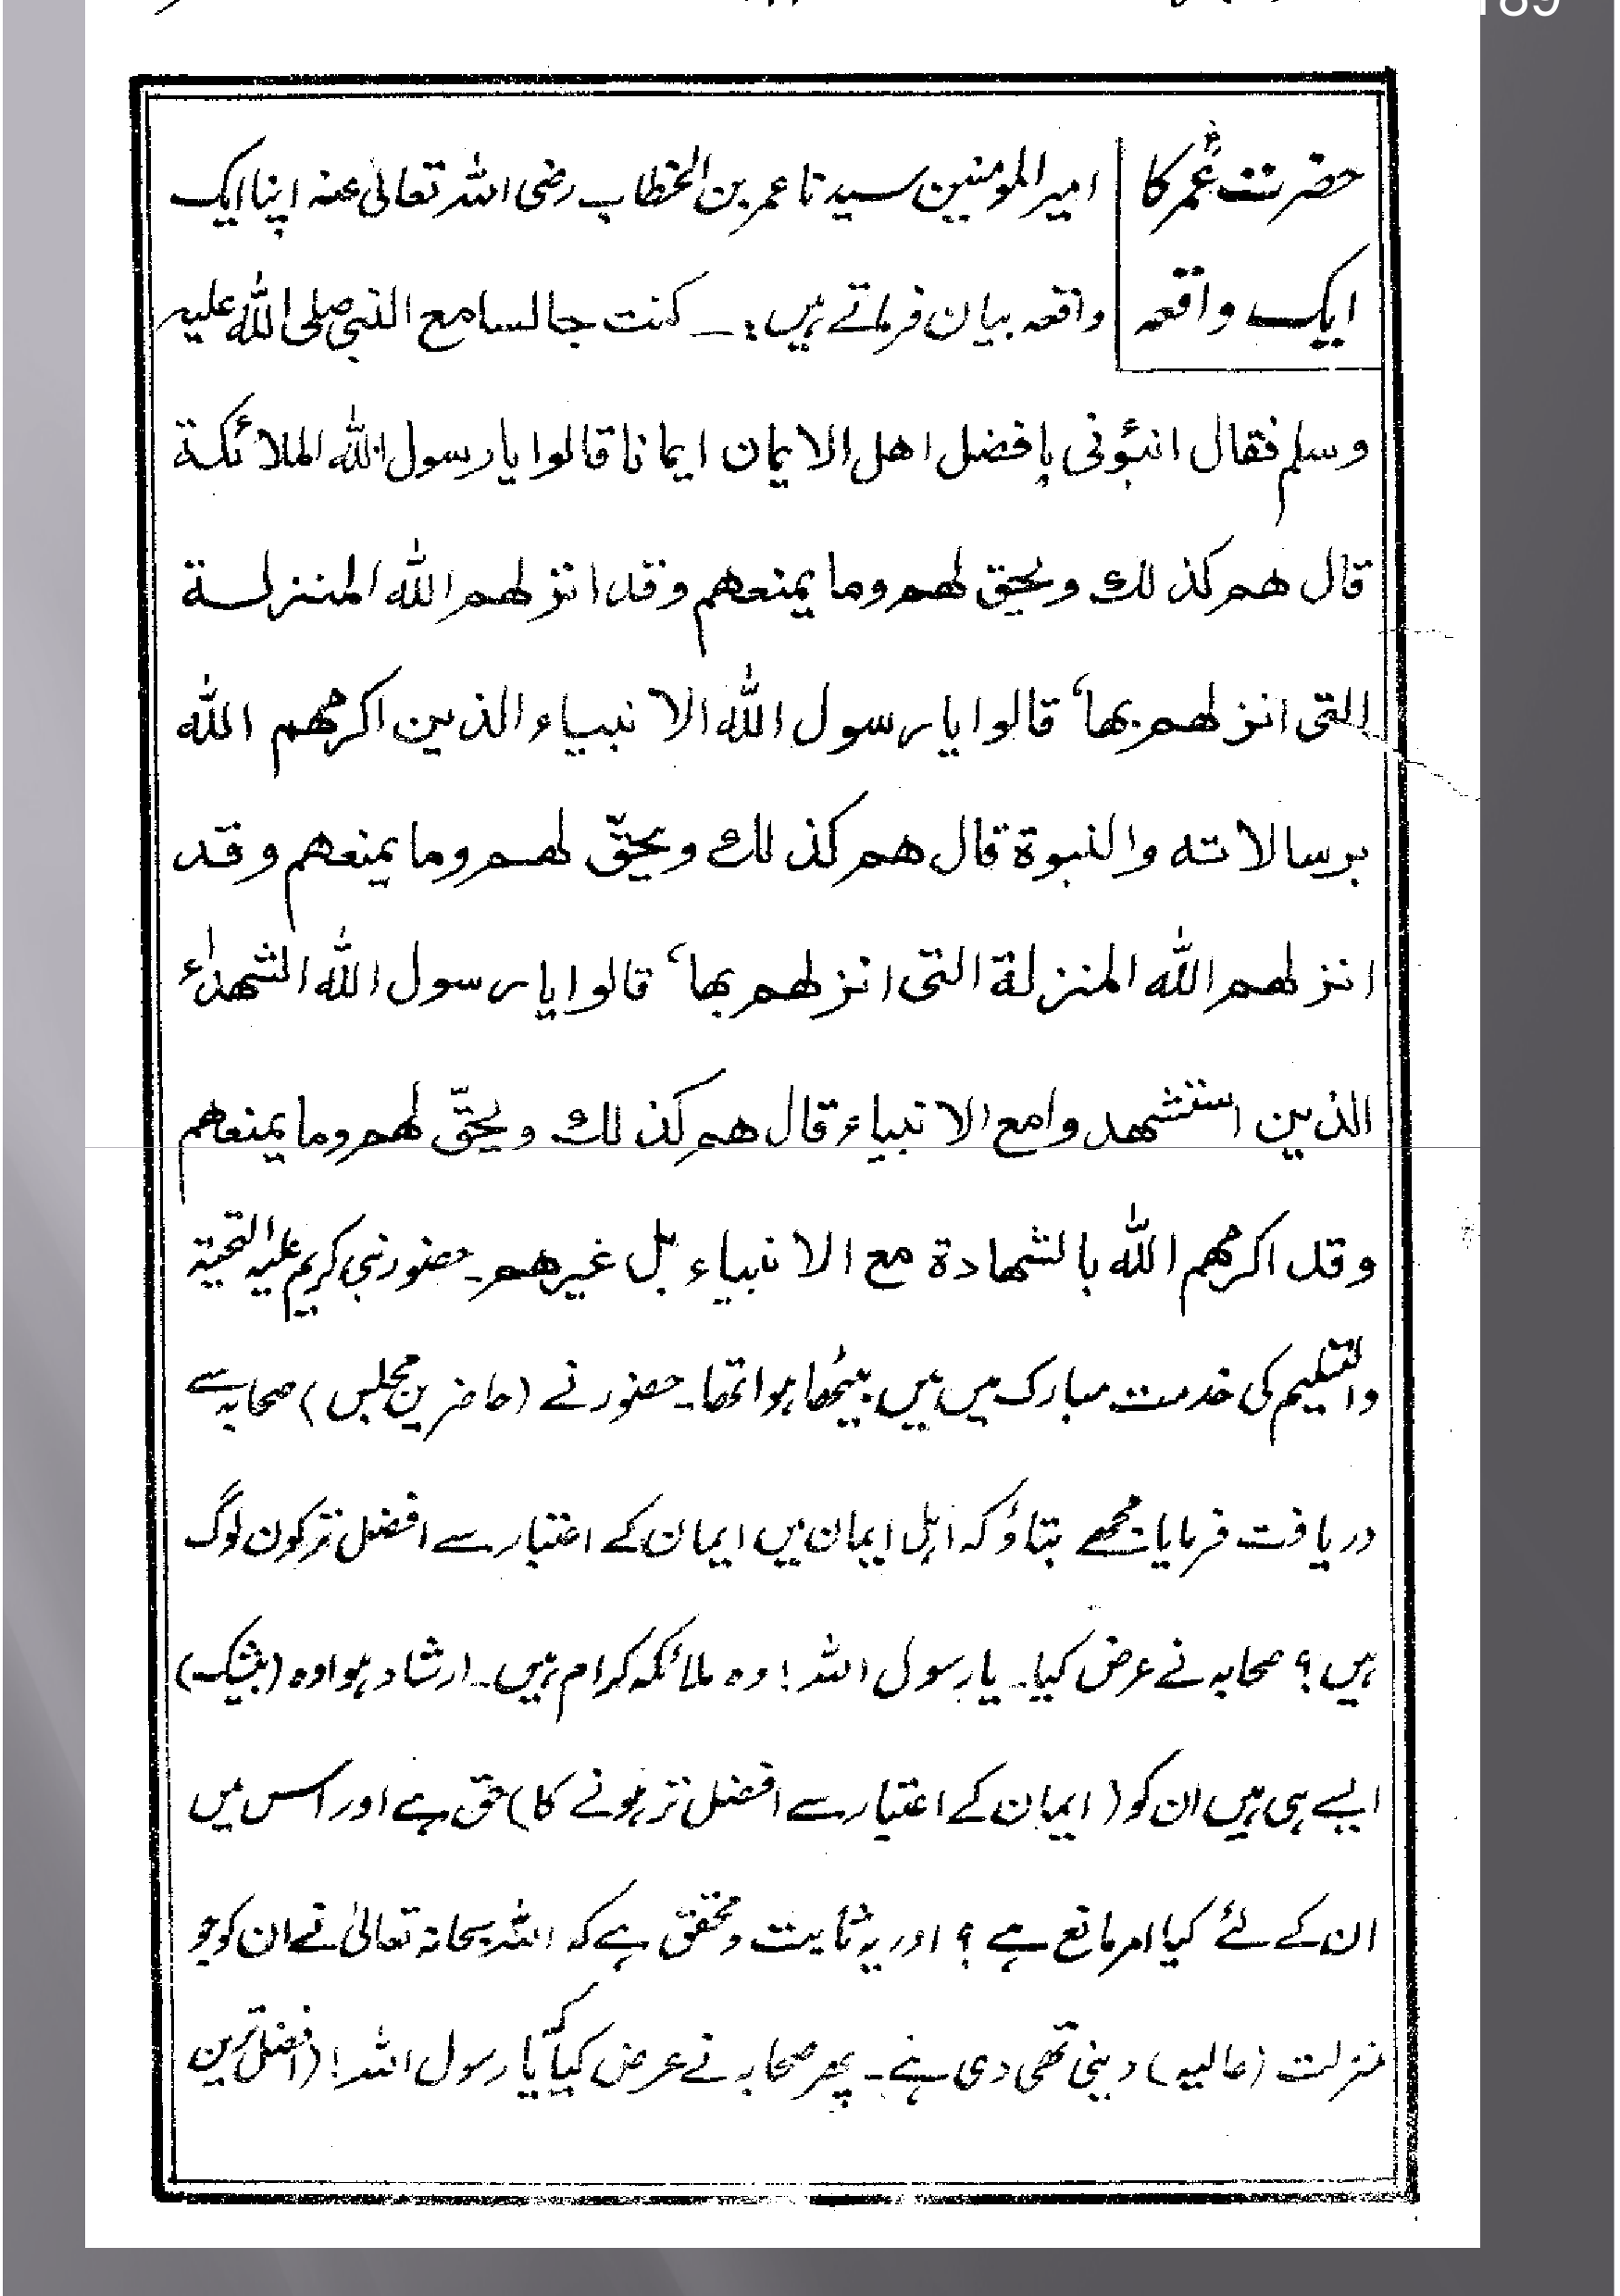 189
حضرت عمرؓ کا
ایک واقعہ
امیر المومنین سیدنا عمر بن الخطاب رضی اللہ تعالیٰ عنہ اپنا ایک
واقعہ بیان فرماتے ہیں:۔ کنت جالسا مع النبی صلی اللہ علیہ
وسلم فقال انبؤنی بافضل اھل الایمان ایمانا قالوا یا رسول اللہ الملائکۃ
قال ھم کذلک ویحق لھم وما یمنعھم وقد انزلھم اللہ المنزلۃ
التی انزلھم بھا، قالوا یا رسول اللہ الانبیاء الذین اکرمھم اللہ
برسالاتہ والنبوۃ قال ھم کذلک ویحقّ لھم وما یمنعھم وقد
انزلھم اللہ المنزلۃ التی انزلھم بھا، قالوا یا رسول اللہ الشھداء
الذین استشھدوا مع الانبیاء قال ھم کذلک ویحقّ لھم وما یمنعھم
وقد اکرمھم اللہ بالشھادۃ مع الانبیاء بل غیرھم۔ حضور نبی کریم علیہ التحیۃ
والتسلیم کی خدمت مبارک میں میں بیٹھا ہوا تھا۔ حضور نے (حاضرین مجلس) صحابہ سے
دریافت فرمایا مجھے بتاؤ کہ اہل ایمان میں ایمان کے اعتبار سے افضل تر کون لوگ
ہیں؟ صحابہ نے عرض کیا۔ یا رسول اللہ! وہ ملائکہ کرام ہیں۔ ارشاد ہوا وہ (بیشک)
ایسے ہی ہیں ان کو (ایمان کے اعتبار سے افضل تر ہونے کا) حق ہے اور اس میں
ان کے لئے کیا امر مانع ہے؟ اور یہ ثابت و محقق ہے کہ اللہ سبحانہ تعالیٰ نے ان کو جو
منزلت (عالیہ) دینی تھی دی ہے۔ پھر صحابہ نے عرض کیا یا رسول اللہ! (افضل ترین